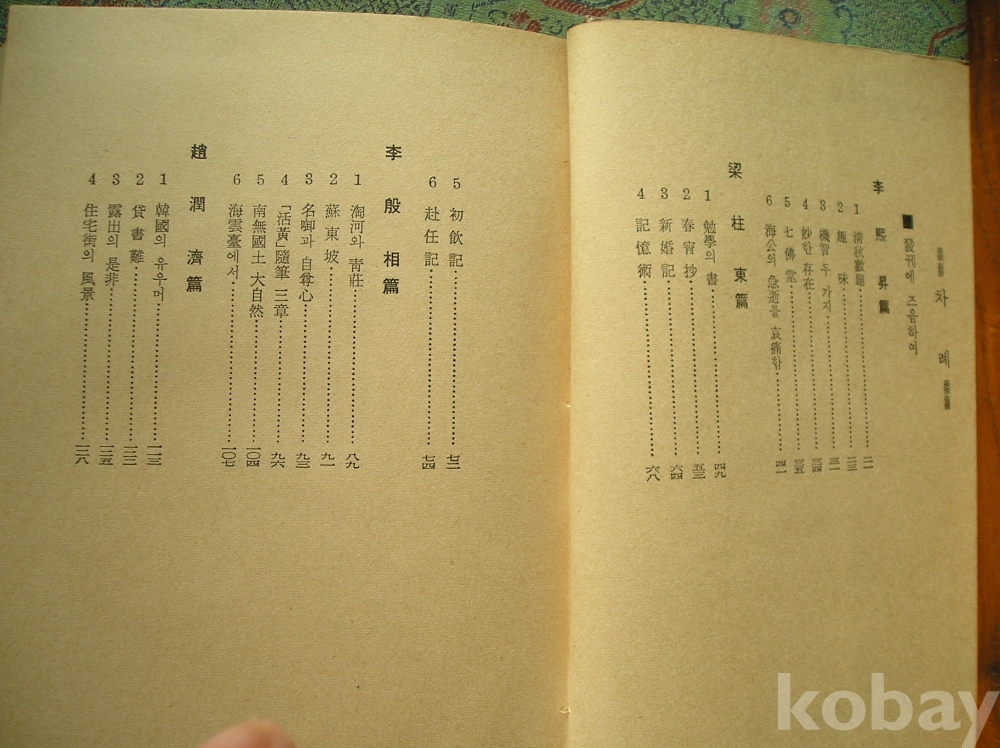 차례
■ 發刊에 즈음하여
李熙昇篇
1 清秋數題 二一
2 趣味 二三
3 機智 두 가지 三一
4 妙한 存在 三四
5 七佛堂 三五
6 海公의 急逝를 哀痛함 四一
梁柱東篇
1 勉學의 書 四九
2 春宵抄 五三
3 新婚記 六四
4 記憶術 六八
5 初飮記 七二
6 赴任記 七四
李殷相篇
1 淘河와 靑莊 八九
2 蘇東坡 九一
3 名啣과 自尊心 九三
4 「活黃」隨筆 三章 九六
5 南無國土 大自然 一〇四
6 海雲臺에서 一〇七
趙潤濟篇
1 韓國의 유우머 一一三
2 貸書難 一二三
3 露出의 是非 一三五
4 住宅街의 風景 一三八
kobay